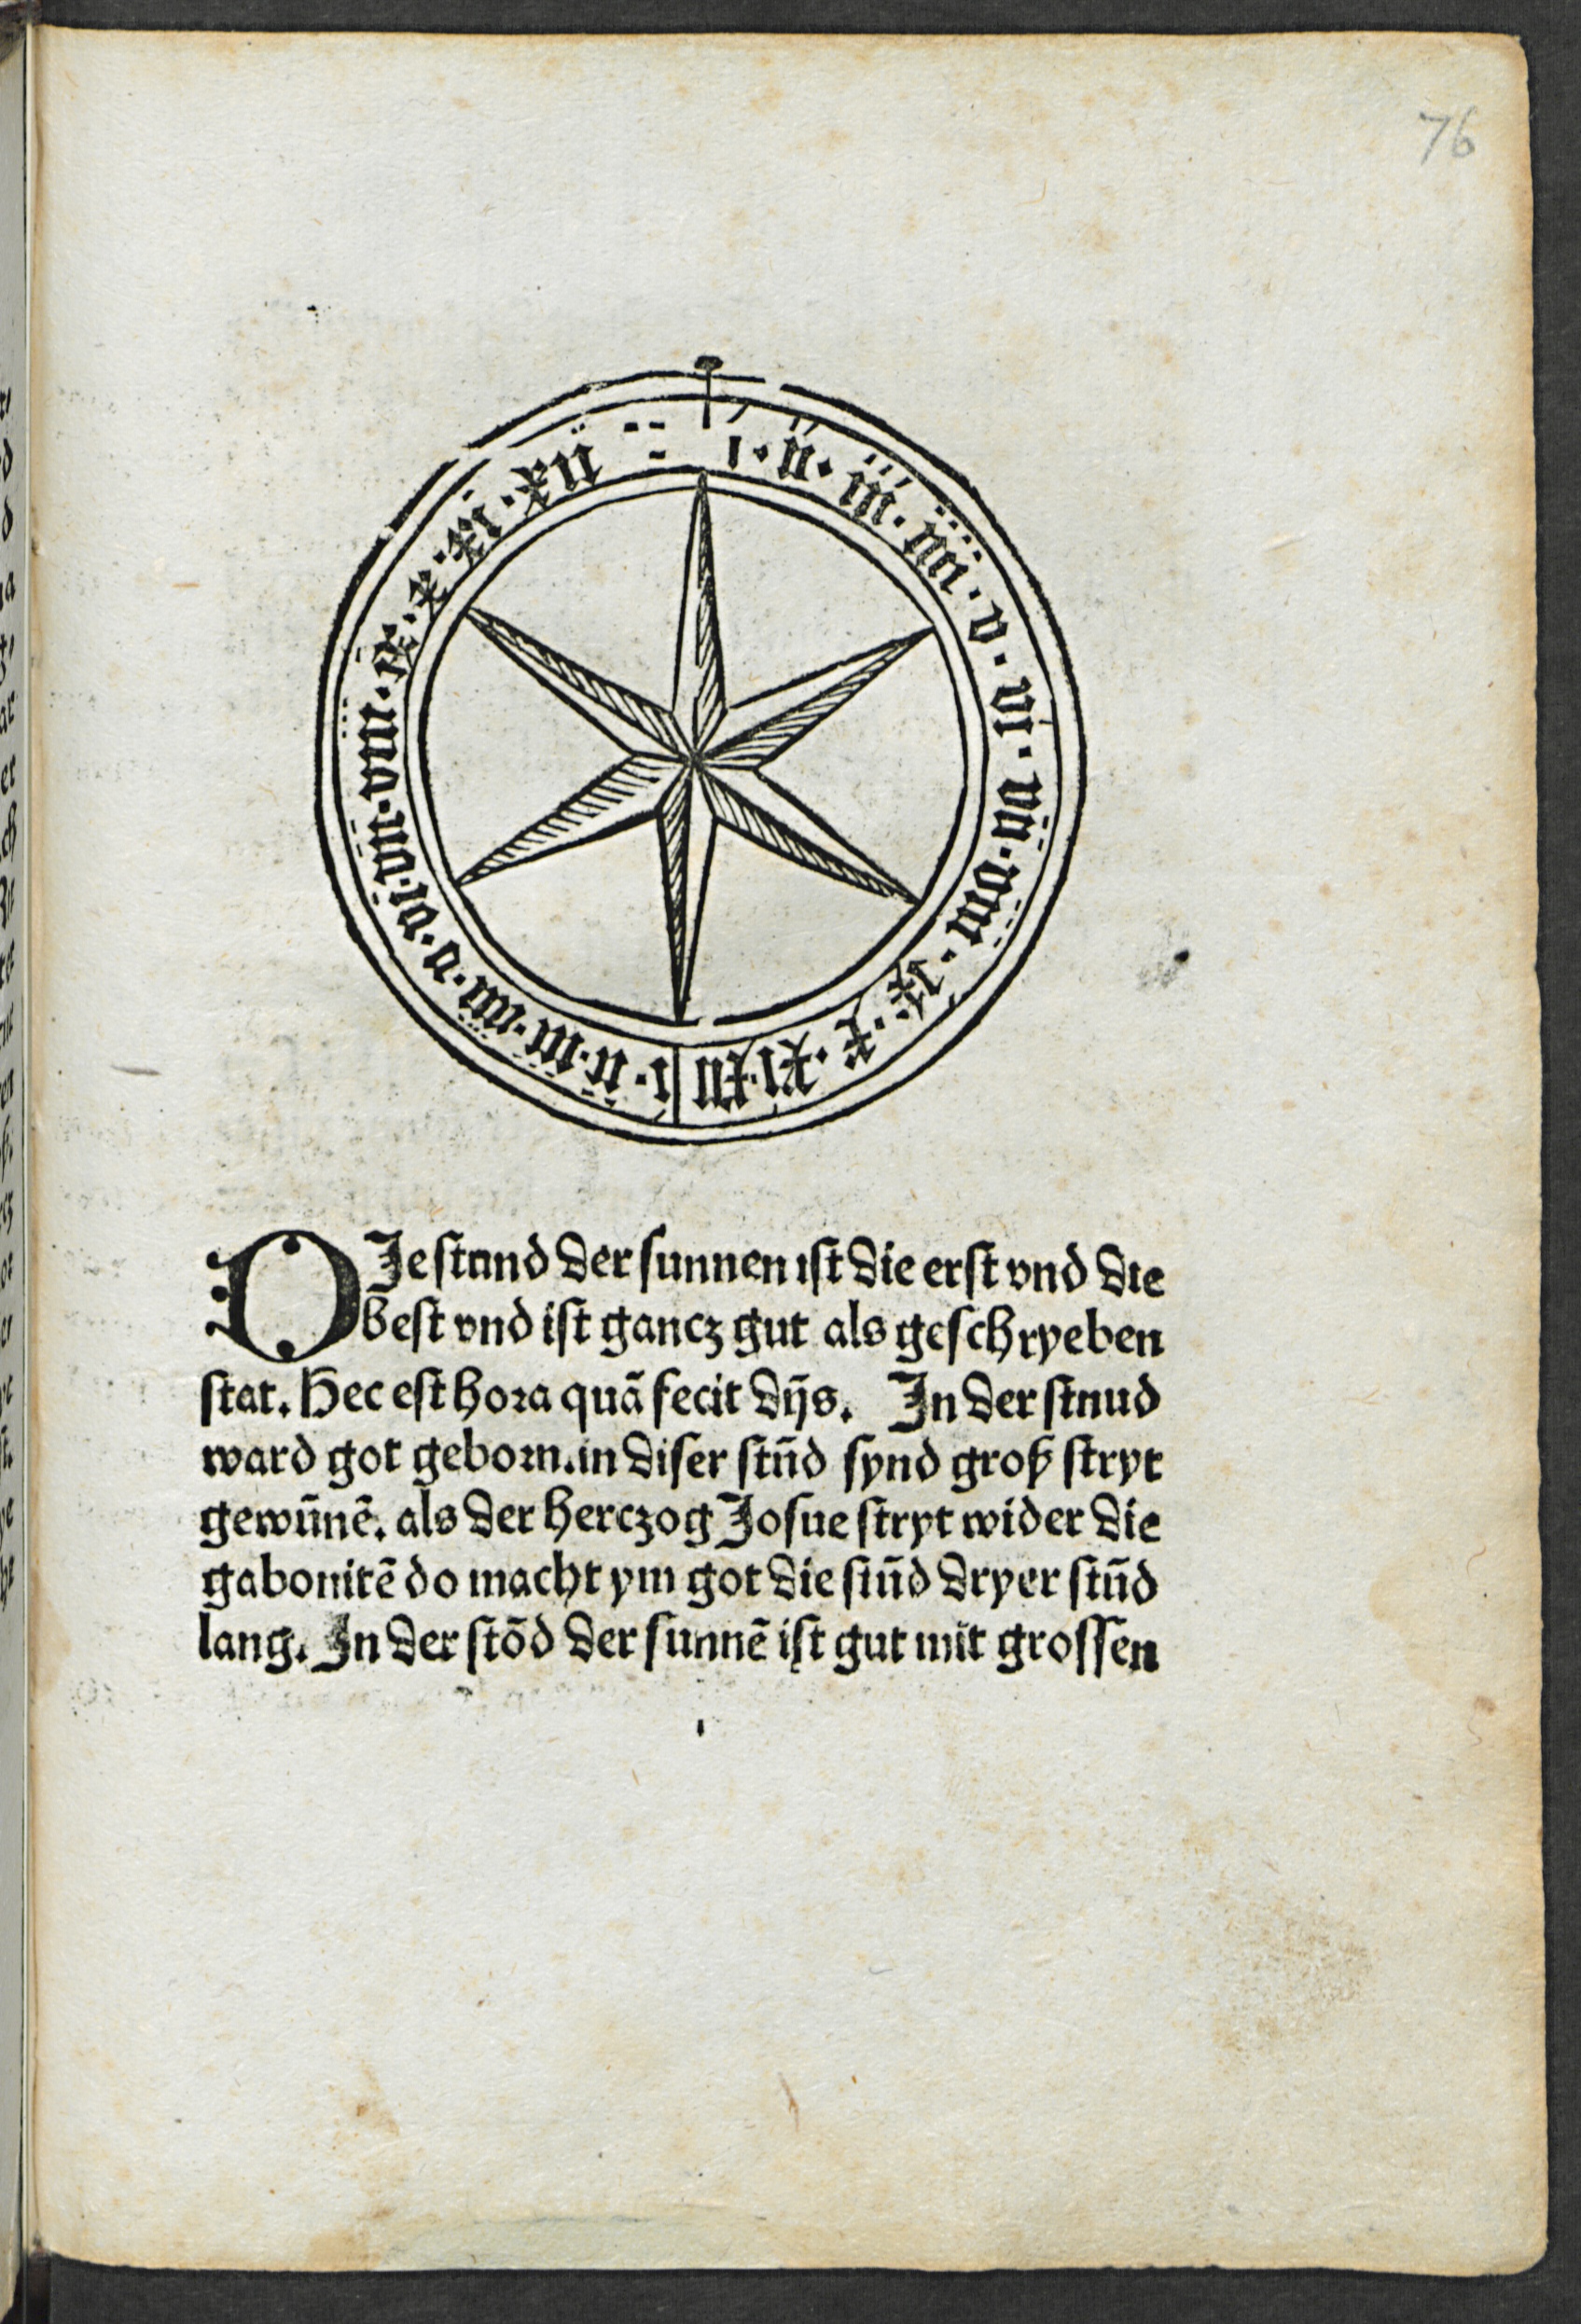 76
i · ii · iii · iiii · v · vi · vii · viii · ix · x · xi · xii
i · ii · iii · iiii · v · vi · vii · viii · ix · x · xi · xii
DIe stund der sunnen ist die erst vnd die
best vnd ist gancz gut als geschryeben
stat. Hec est hora quā fecit dn̄s. In der stnud
ward got geborn. in diser stūd synd groß stryt
gewūnē. als der herczog Josue stryt wider die
gabonitē do macht ym got die stūd dryer stūd
lang. In der stōd der sunnē ist gut mit grossen